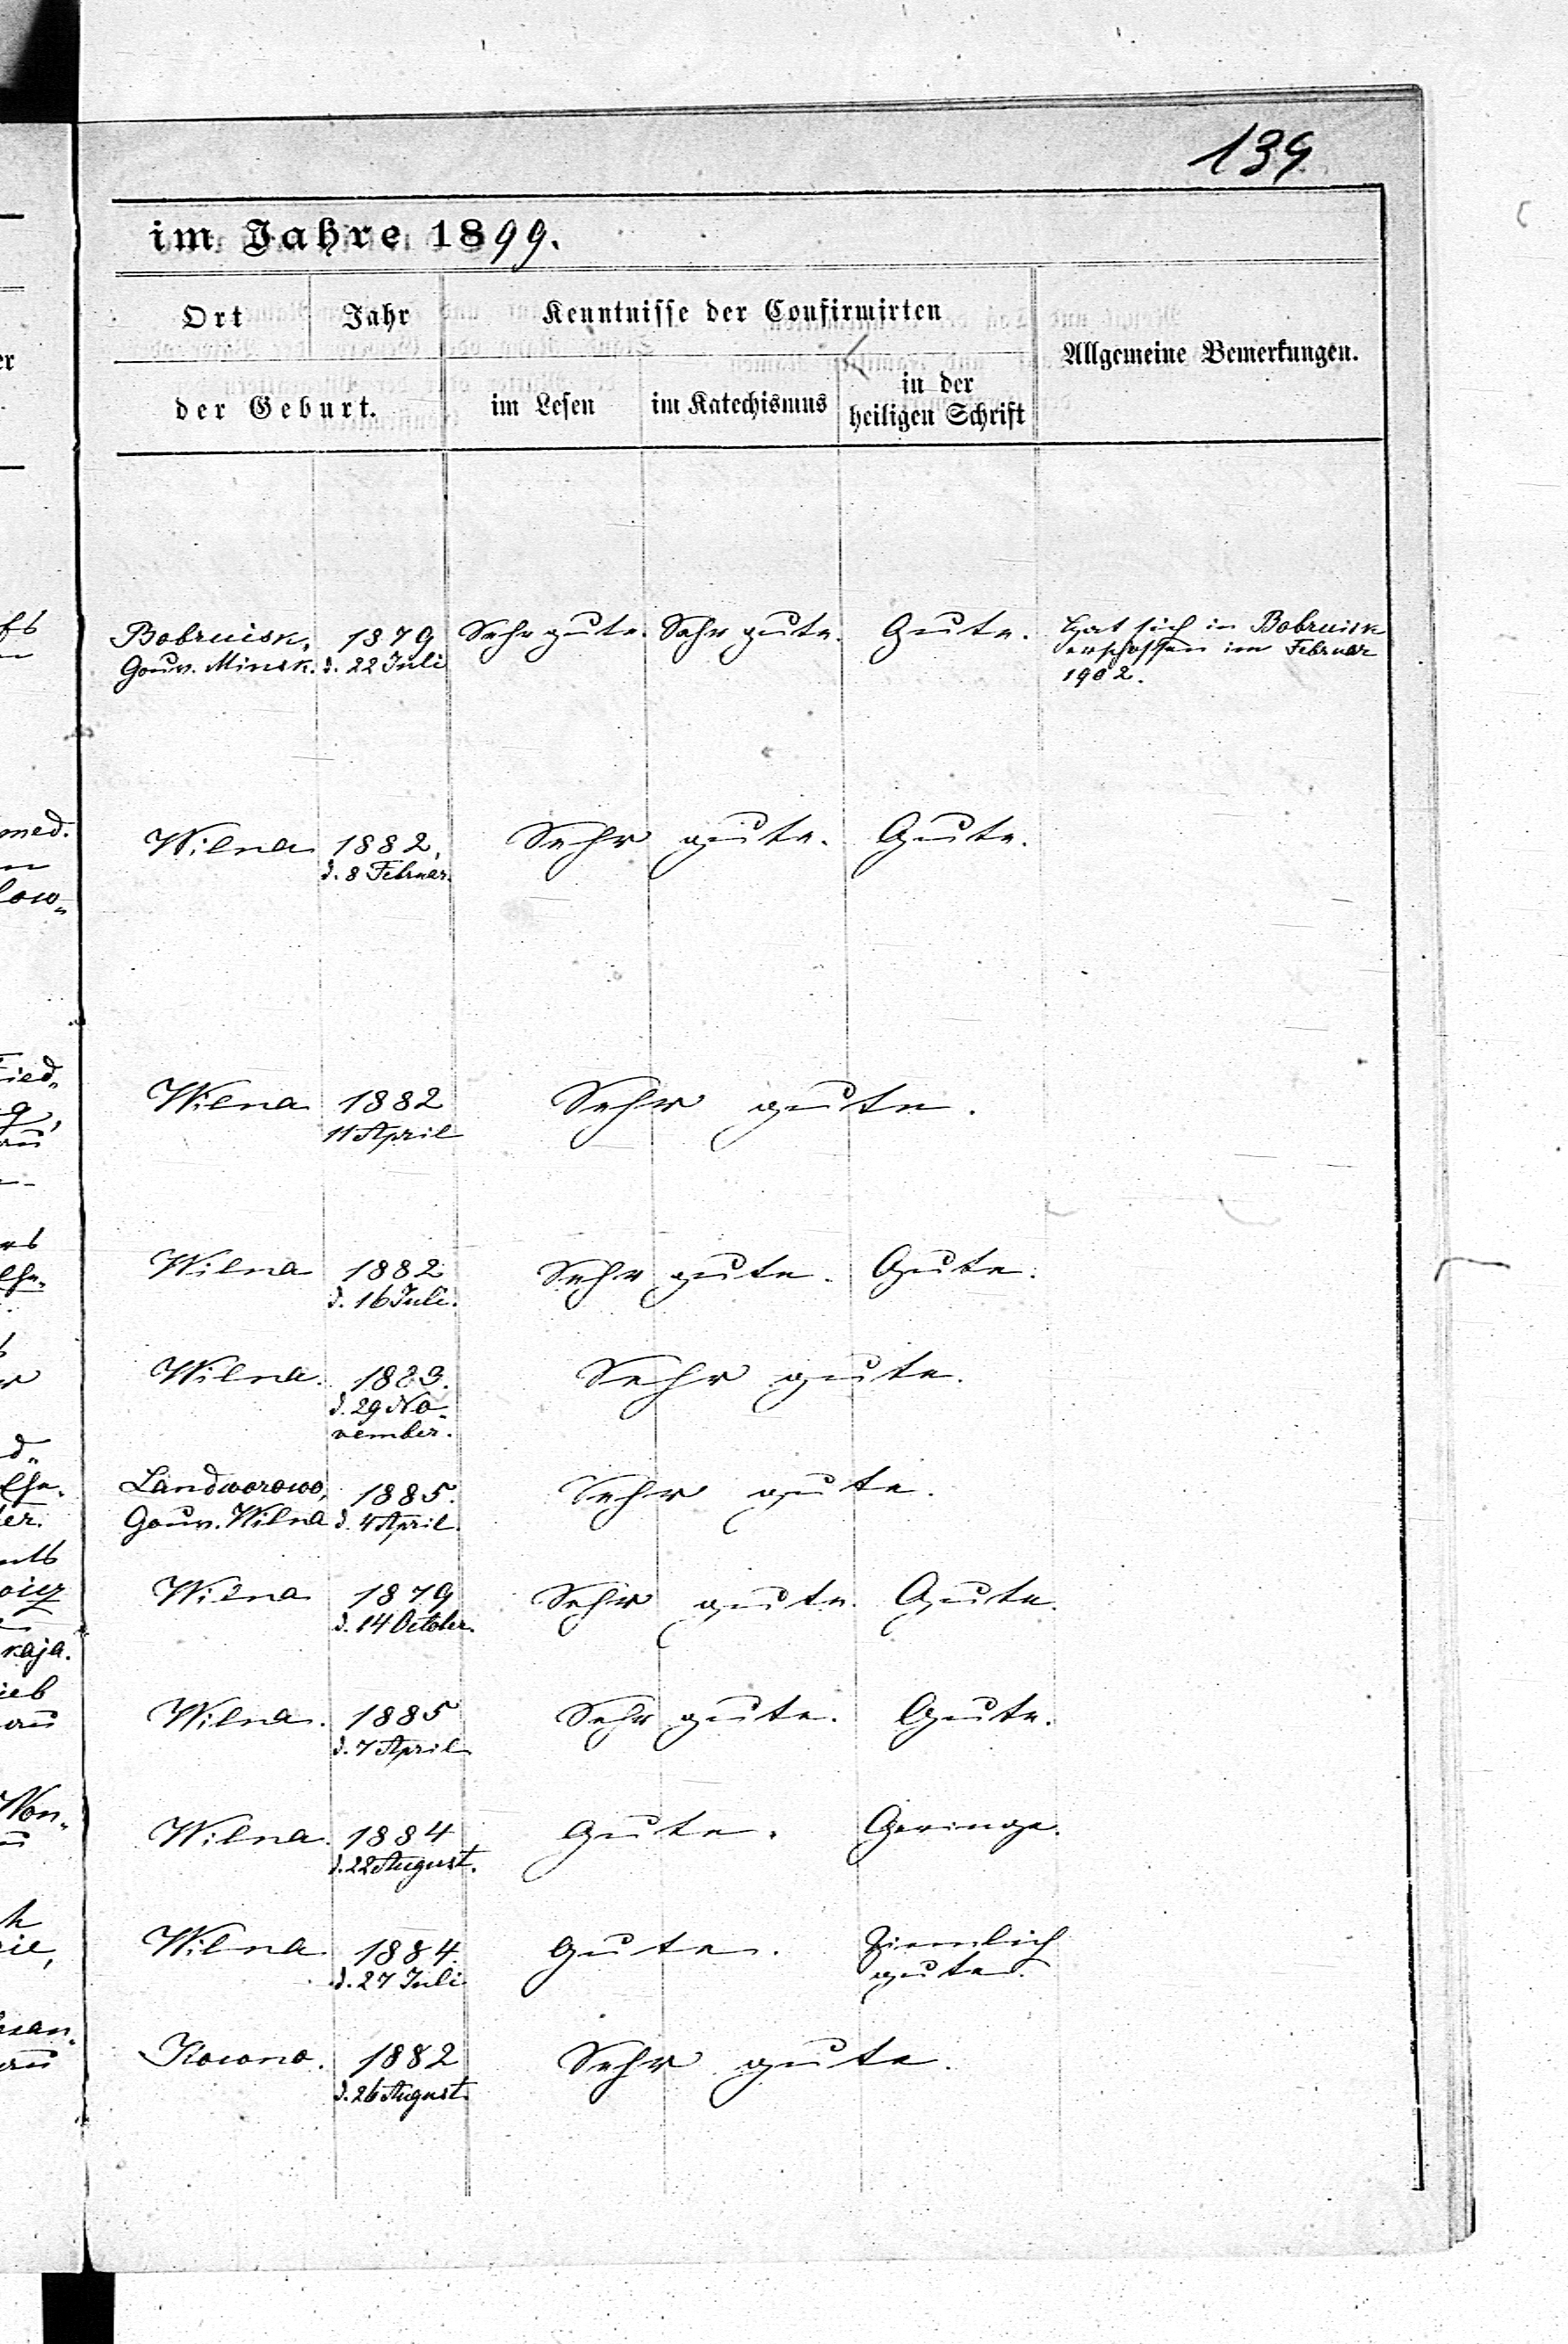 139.
im Jahre 1899.
Ort
Jahr
Kenntnisse der Confirmirten
Allgemeine Bemerkungen.
der Geburt.
im Lesen
im Katechismus
in der
heiligen Schrift
Bobruisk, 1879 Sehr gute. Sehr gute. Gute. Hat sich in Bobruisk
Gouv. Minsk. d. 22 Juli erschossen im Februar
1902.
med.
Wilna 1882, Sehr gute. Gute.
d. 8 Februar.
low„
Fied„
Wilna 1882 Sehr gute.
11 April
Wilna 1882 Sehr gute. Gute.
d. 16 Juli.
Wilna. 1883. Sehr gute.
d. 29 No-
vember.
Landworowo, 1885. Sehr gute.
Gouv. Wilna d. 4 April.
Wilna 1879 Sehr gute. Gute.
d. 14 October.
kaja.
Wilna. 1885 Sehr gute. Gute.
d. 7 April
Wilna. 1884 Gute. Geringe.
d. 22 August.
Wilna 1884. Gute. Ziemlich
d. 27 Juli gute.
Kowno. 1882 Sehr gute.
d. 26 August.